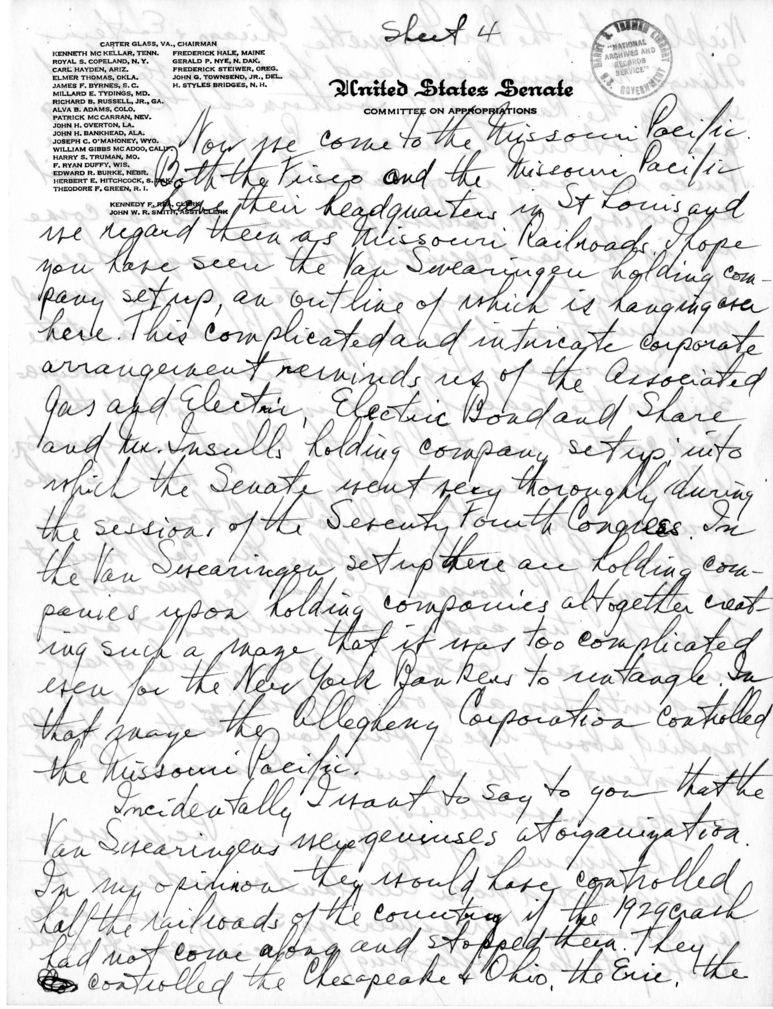 Sheet 4
CARTER GLASS, VA., CHAIRMAN
KENNETH MC KELLAR, TENN.
ROYAL S. COPELAND, N. Y.
CARL HAYDEN, ARIZ.
ELMER THOMAS, OKLA.
JAMES F. BYRNES, S. C.
MILLARD E. TYDINGS, MD.
RICHARD B. RUSSELL, JR., GA.
ALVA B. ADAMS, COLO.
PATRICK MC CARRAN, NEV.
JOHN H. OVERTON, LA.
JOHN H. BANKHEAD, ALA.
JOSEPH C. O'MAHONEY, WYO.
WILLIAM GIBBS MC ADOO, CALIF.
HARRY S. TRUMAN, MO.
F. RYAN DUFFY, WIS.
EDWARD R. BURKE, NEBR.
HERBERT E. HITCHCOCK, S. DAK.
THEODORE F. GREEN, R. I.
FREDERICK HALE, MAINE
GERALD P. NYE, N. DAK.
FREDERICK STEIWER, OREG.
JOHN G. TOWNSEND, JR., DEL.
H. STYLES BRIDGES, N. H.
KENNEDY F. REA, CLERK
JOHN W. R. SMITH, ASST. CLERK
HARRY S. TRUMAN LIBRARY
"NATIONAL
ARCHIVES AND
RECORDS
SERVICE"
U.S. GOVERNMENT
United States Senate
COMMITTEE ON APPROPRIATIONS
Now we come to the Missouri Pacific.
Both the Frisco and the Missouri Pacific
have their headquarters in St Louis and
we regard them as Missouri Railroads. I hope
you have seen the Van Swearingen holding com-
pany set up, an outline of which is hanging over
here. This complicated and intricate corporate
arrangement reminds us of the Associated
Gas and Electric, Electric Bond and Share
and Mr. Insulls holding company set up into
which the Senate went very thoroughly during
the sessions of the Seventy Fourth Congress. In
the Van Swearingen set up there are holding com-
panies upon holding companies altogether creat-
ing such a maze that it was too complicated
even for the New York Bankers to untangle. In
that maze the Allegheny Corporation controlled
the Missouri Pacific.
Incidentally I want to say to you that the
Van Swearingens were geniuses at organization.
In my opinion they would have controlled
half the railroads of the country if the 1929 crash
had not come along and stopped them. They
controlled the Chesapeake & Ohio, the Erie, the